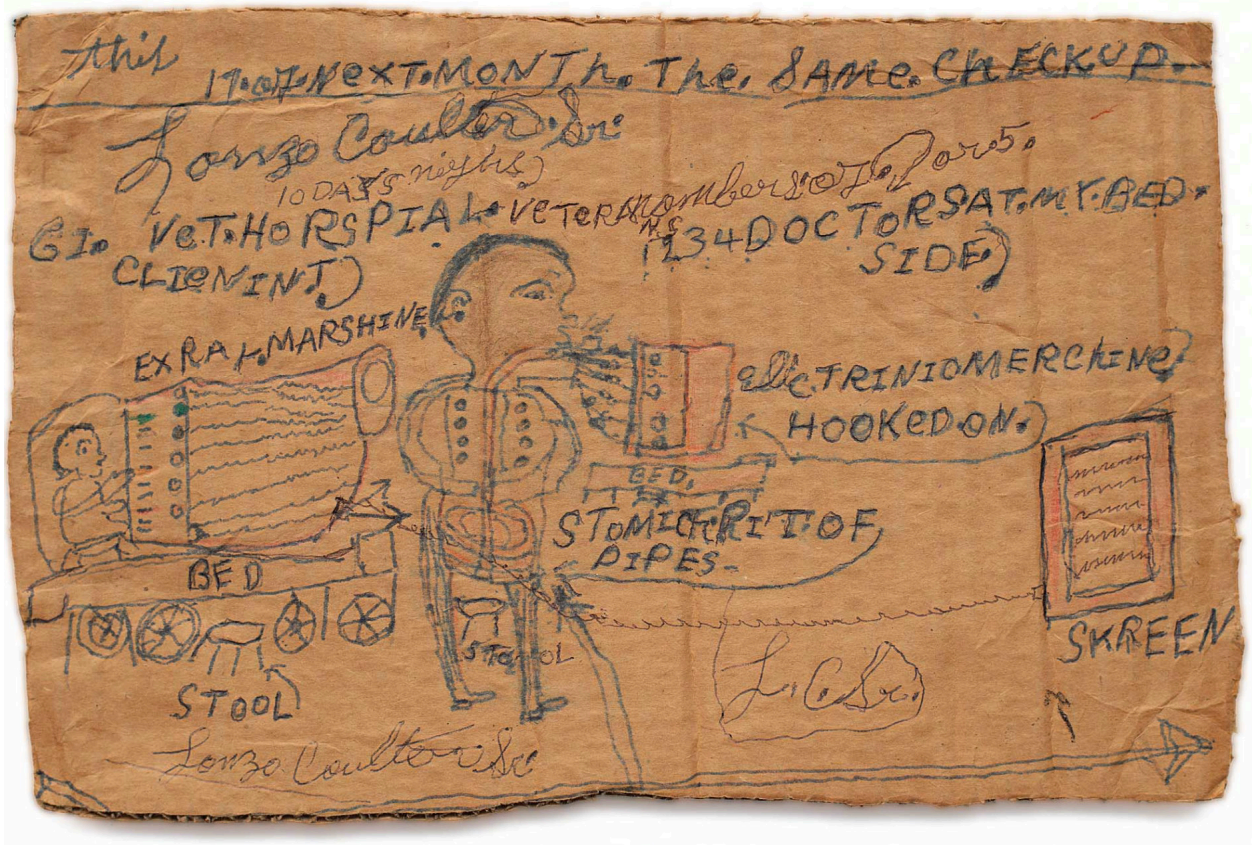 this
17.07.NEXT.MONTh. The. SAMe. CHECKUP.
Lonzo Coulter. Sr.
10 DAYS nights)
nombers of. 7 or 5.
GI. VeT. HORSPIAL. VETERANS
CLIENINT.)
1234 DOCTORS AT. MY. BED.
SIDE.)
EXRAY. MARSHINE.
elleCTRINIOMERCHINE)
HOOKeD. ON.)
BED.
STOMICK
OF
PIPES-
BED
STOOL
STOOL
SKREEN
L. C. Sr.
Lonzo Coulter Sr